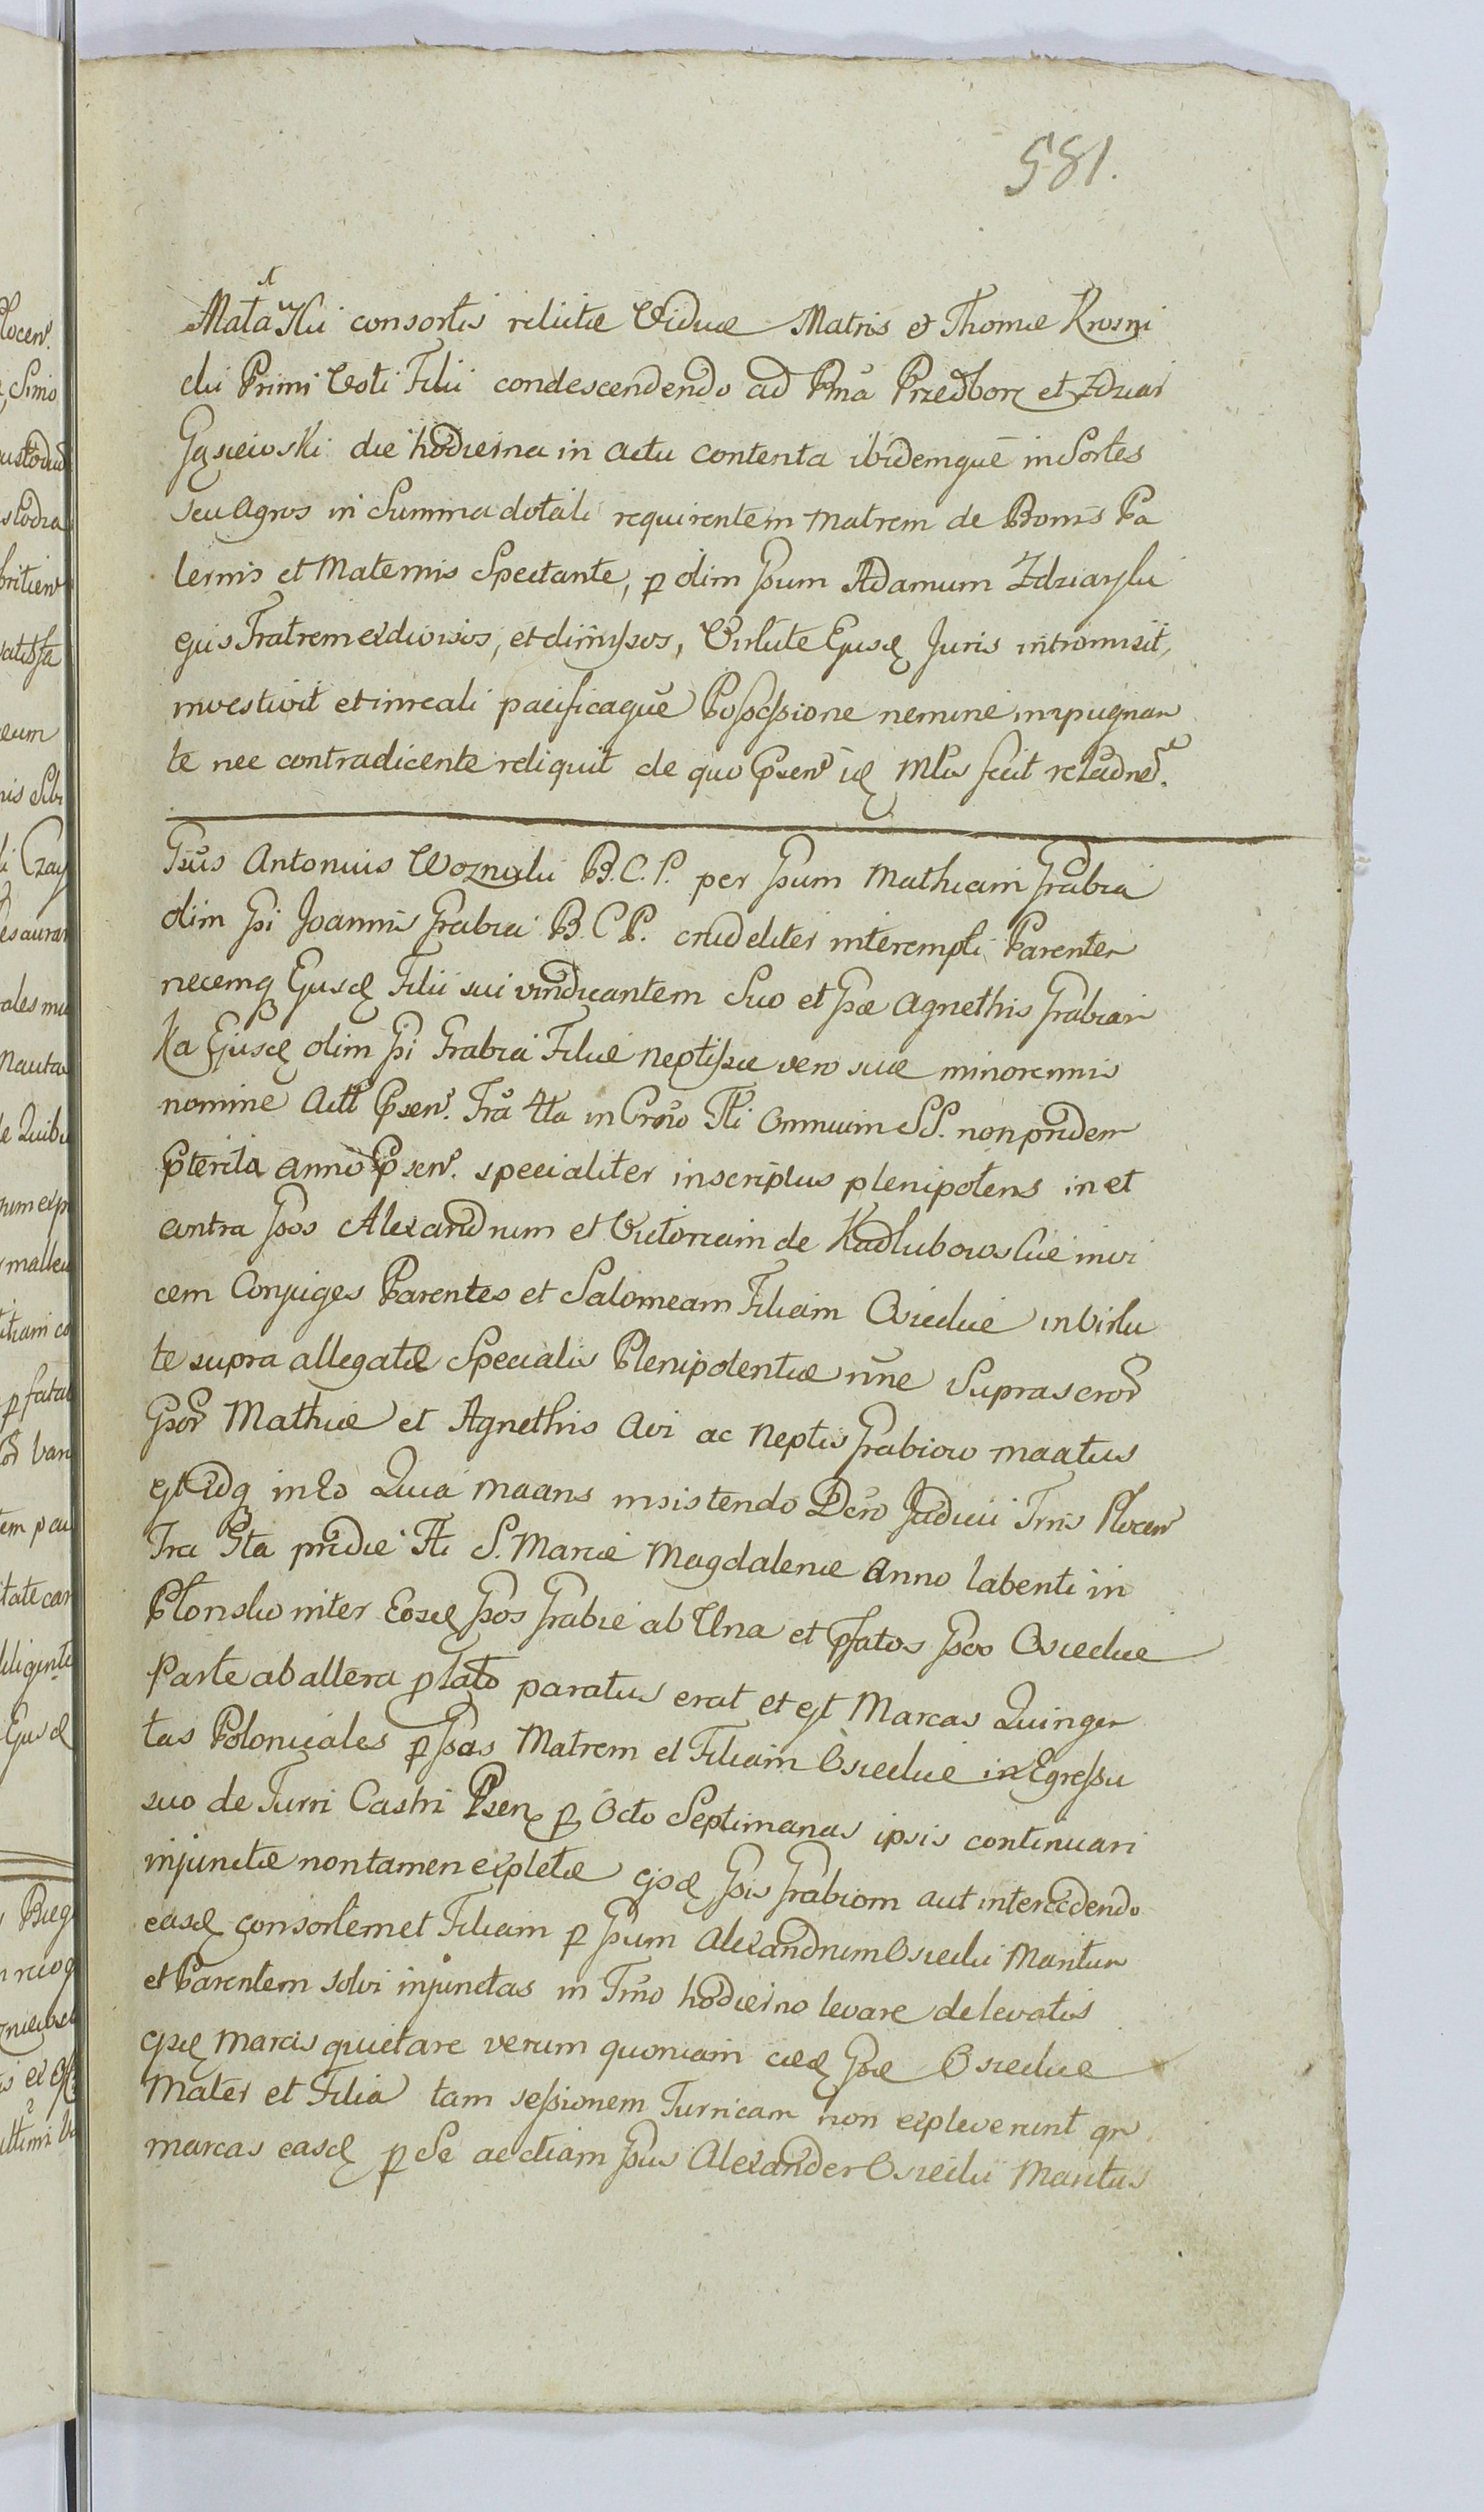 581.
Matayki consortis relictæ Viduæ Matris et Thomæ Krosni
cki Primi Voti Filii condescendendo ad Bna Przedborz et Zdziar
Gąsiewski die hodierna in actu contenta ibidemque in Sortes
seu Agros in Summa dotali requirentem Matrem de Bonis Pa
ternis et Maternis Spectante, p olim Gsum Adamum Zdziarski
ejus Fratrem exdivisos, et dimissos, Virtute Ejusd Juris intromisit,
investivit et in reali pacificaque Possessione nemine impugnan
te nec contradicente reliquit de quo Psens id Mlis fecit relaõnē.
Gsus Antonius Woznicki B.C.P. per Gsum Mathiam Grabia
olim Gsi Joannis Grabia B.C.P. crudeliter interempti Parentem
necemq Ejusd Filii sui vindicantem Suo et Gsæ Agnethis Grabian
ka Ejusd olim Gsi Grabia Filiæ neptis suæ vero suæ minorennis
nomine Actt Psen. Fra 4ta in Crõ Fti Omnium SS. non pridem
Pterita anno Psen. specialiter inscriptus plenipotens in et
contra Gsos Alexandrum et Victoriam de Kadlubowskie invi
cem Conjuges Parentes et Salomeam Filiam Osieckie in Virtu
te supra allegatæ Specialis Plenipotentiæ nñe Suprascror
Gsor Mathiæ et Agnethis Avi ac Neptis Grabiow maatus
est idq in Eo Quia maans insistendo Dcro Judicii Trris Plocen
Fra 5ta pridie Fti S. Mariæ Magdalenæ Anno labenti in
Plonsko inter Eosd Gsos Grabie ab Una et Pfatos Gsos Osieckie
Parte ab altera p lato paratus erat et est Marcas Quingen
tas Polonicales p Gsas Matrem et Filiam Osieckie in Egressu
suo de Turri Castri Psen p Octo Septimanas ipsis continuari
injunctæ non tamen expletæ eisd Gsis Grabiom aut intercedendo
easd consortem et Filiam p Gsum Alexandrum Osiecki Maritum
et Parentem solvi injunctas in Tmo hodierno levare de levatis
eisd marcis quietare verum quoniam eæd Gsæ Osieckie
Mater et Filia tam sessionem Turricam non expleverunt qm
marcas easd p Se ac etiam Gsus Alexander Osiecki Maritus